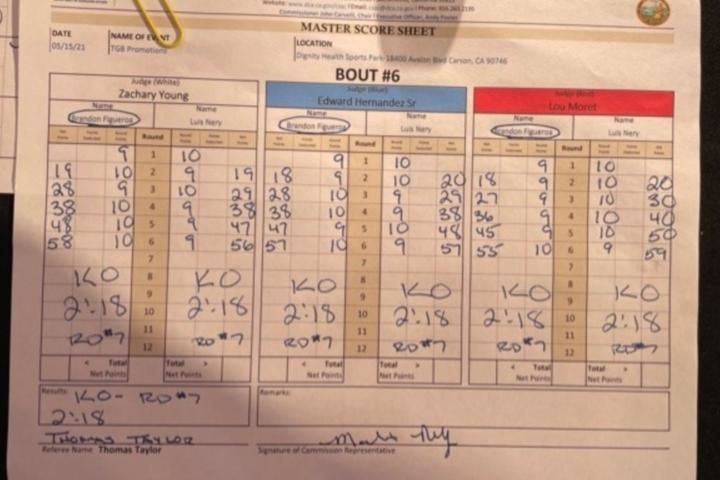 Website: www.dca.ca.gov/csac | Email: csac@dca.ca.gov | Phone: 916.263.2195
Commissioner John Carvelli, Chair | Executive Officer, Andy Foster
MASTER SCORE SHEET
DATE NAME OF EVENT LOCATION
05/15/21 TGB Promotions Dignity Health Sports Park-18400 Avalon Blvd Carson, CA 90746
BOUT #6
Judge (White) Judge (Blue) Judge (Red)
Zachary Young Edward Hernandez Sr Lou Moret
Name Name Name Name Name Name
Brandon Figueroa Luis Nery Brandon Figueroa Luis Nery Brandon Figueroa Luis Nery
Round Round Round
9 1 10 9 1 10 9 1 10
19 10 2 9 19 18 9 2 10 20 18 9 2 10 20
28 9 3 10 29 28 10 3 9 29 27 9 3 10 30
38 10 4 9 38 38 10 4 9 38 36 9 4 10 40
48 10 5 9 47 47 9 5 10 48 45 9 5 10 50
58 10 6 9 56 57 10 6 9 57 55 10 6 9 59
7 7 7
KO 8 KO KO 8 KO KO 8 KO
9 9 9
2:18 10 2:18 2:18 10 2:18 2:18 10 2:18
11 11 11
RD#7 12 RD#7 RD#7 12 RD#7 RD#7 12 RD#7
< Total Total > < Total Total > < Total Total >
Net Points Net Points Net Points Net Points Net Points Net Points
Results: KO- RD#7 Remarks:
2:18
THOMAS TAYLOR
Referee Name Thomas Taylor Signature of Commission Representative